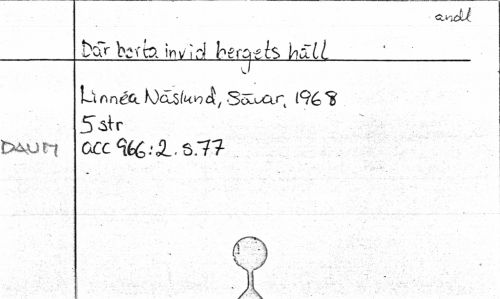 andl
Där borta invid bergets häll
Linnéa Näslund, Sävar, 1968
5 str
DAUM acc 966:2.s.77